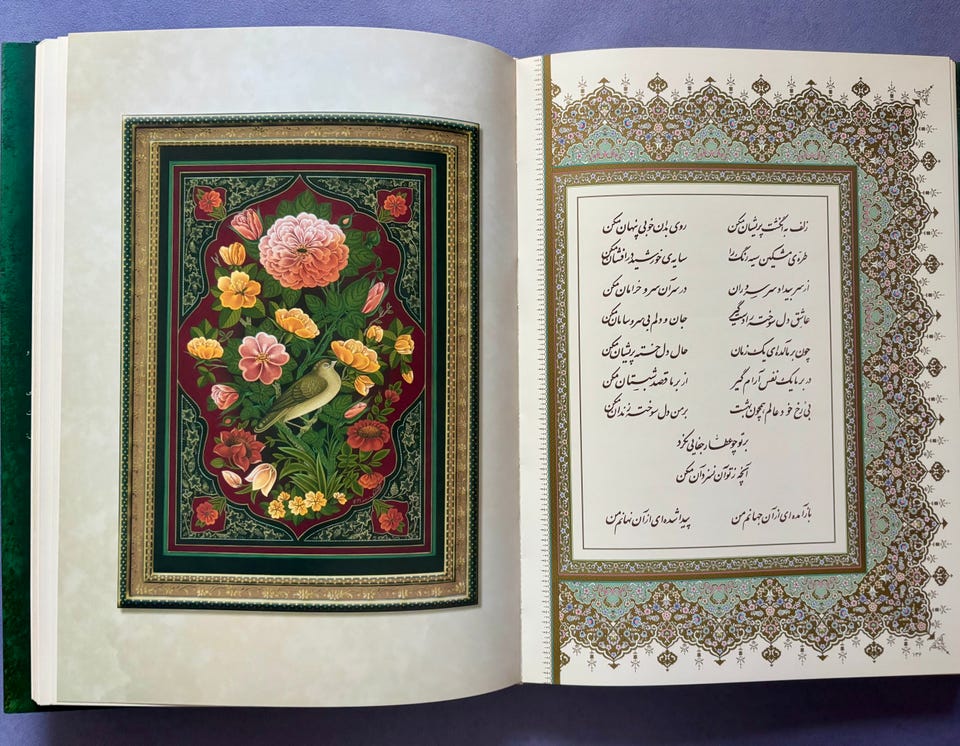 زلف به انگشت پریشان مکن روی بدان خوبی پنهان مکن
طره‌ی مشکین سیه رنگ را سایه‌ی خورشید درافشان مکن
از سر بیداد سر سروران در سر آن سرو خرامان مکن
عاشق دل سوخته را دست گیر جان و دلم بی سر و سامان مکن
چون بر ما آمده‌ای یک زمان حال دل خسته پریشان مکن
در بر ما یک نفس آرام گیر از بر ما قصد شبستان مکن
بی رخ خود عالم همچون بهشت بر من دل سوخته زندان مکن
بر تو چو عطار جفایی نکرد
آنچه ز تو آن نسزد آن مکن
باز آمده‌ای از آن جهانم من پیدا شده‌ای از آن نهانم من
۱۳۶